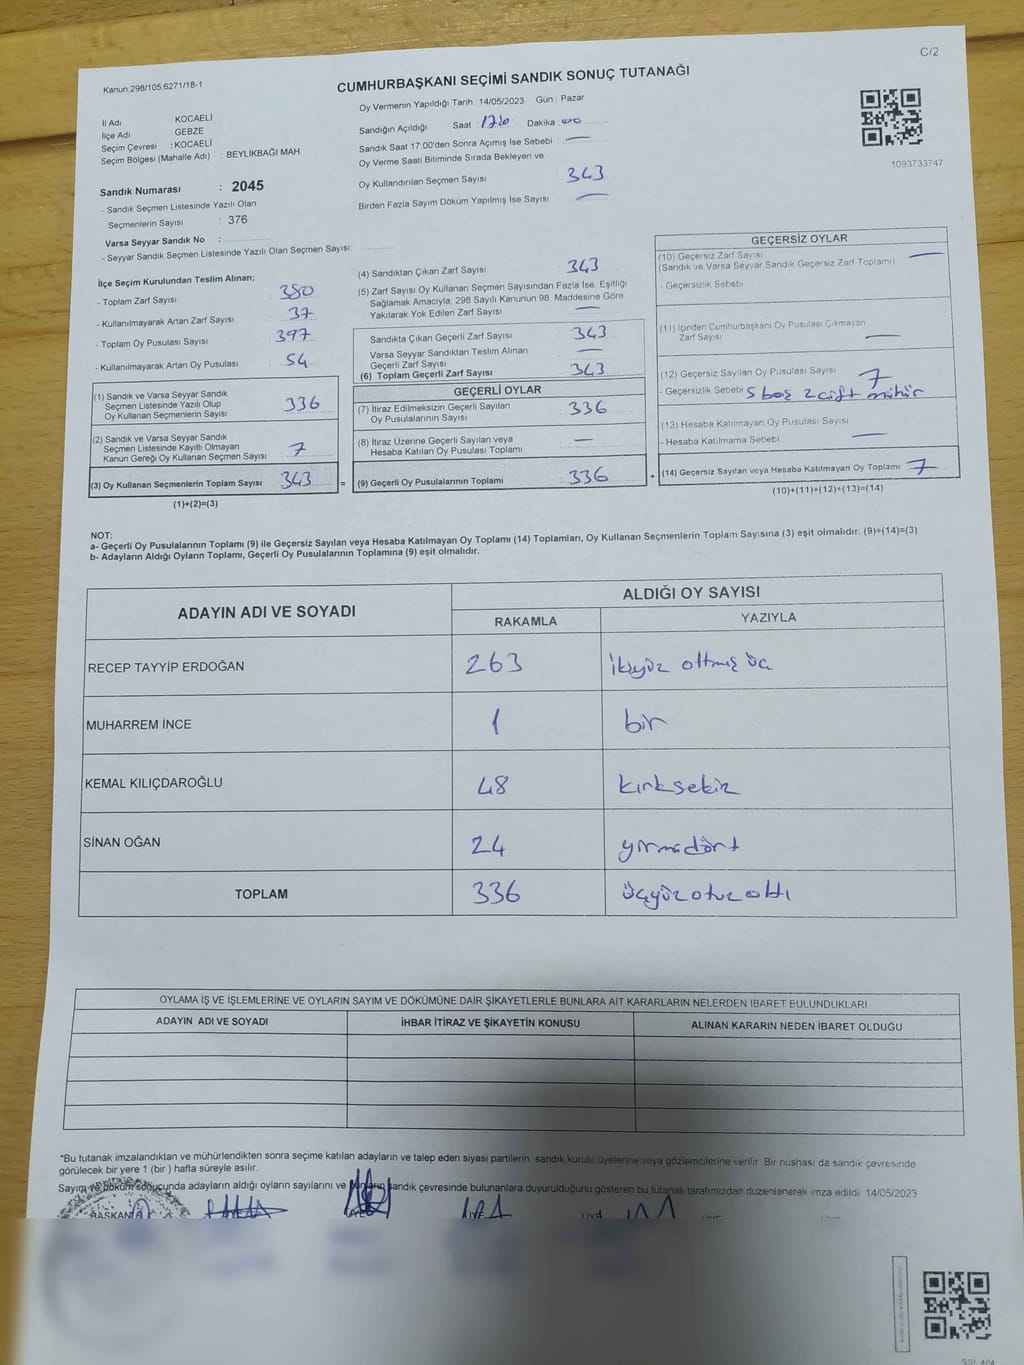 C/2
Kanun:298/105;6271/18-1
CUMHURBAŞKANI SEÇİMİ SANDIK SONUÇ TUTANAĞI
İl Adı : KOCAELİ
İlçe Adı : GEBZE
Seçim Çevresi : KOCAELİ
Seçim Bölgesi (Mahalle Adı) : BEYLİKBAĞI MAH.
Sandık Numarası : 2045
- Sandık Seçmen Listesinde Yazılı Olan
Seçmenlerin Sayısı : 376
Varsa Seyyar Sandık No :
- Seyyar Sandık Seçmen Listesinde Yazılı Olan Seçmen Sayısı:
Oy Vermenin Yapıldığı Tarih : 14/05/2023 Gün : Pazar
Sandığın Açıldığı Saat : Dakika : 00
Sandık Saat 17:00'den Sonra Açımış İse Sebebi : —
Oy Verme Saati Bitiminde Sırada Bekleyen ve
Oy Kullandırılan Seçmen Sayısı 343
Birden Fazla Sayım Döküm Yapılmış İse Sayısı —
1093733747
İlçe Seçim Kurulundan Teslim Alınan;
- Toplam Zarf Sayısı 380
- Kullanılmayarak Artan Zarf Sayısı 37
- Toplam Oy Pusulası Sayısı 397
- Kullanılmayarak Artan Oy Pusulası 54
(1) Sandık ve Varsa Seyyar Sandık
Seçmen Listesinde Yazılı Olup
Oy Kullanan Seçmenlerin Sayısı 336
(2) Sandık ve Varsa Seyyar Sandık
Seçmen Listesinde Kayıtlı Olmayan
Kanun Gereği Oy Kullanan Seçmen Sayısı 7
(3) Oy Kullanan Seçmenlerin Toplam Sayısı 343 =
(1)+(2)=(3)
(4) Sandıktan Çıkan Zarf Sayısı 343
(5) Zarf Sayısı Oy Kullanan Seçmen Sayısından Fazla İse, Eşitliği
Sağlamak Amacıyla, 298 Sayılı Kanunun 98. Maddesine Göre
Yakılarak Yok Edilen Zarf Sayısı —
Sandıkta Çıkan Geçerli Zarf Sayısı 343
Varsa Seyyar Sandıktan Teslim Alınan
Geçerli Zarf Sayısı —
(6) Toplam Geçerli Zarf Sayısı 343
GEÇERLİ OYLAR
(7) İtiraz Edilmeksizin Geçerli Sayılan
Oy Pusulalarının Sayısı 336
(8) İtiraz Üzerine Geçerli Sayılan veya
Hesaba Katılan Oy Pusulası Toplamı —
(9) Geçerli Oy Pusulalarının Toplamı 336 +
GEÇERSİZ OYLAR
(10) Geçersiz Zarf Sayısı —
(Sandık ve Varsa Seyyar Sandık Geçersiz Zarf Toplamı)
- Geçersizlik Sebebi
(11) İçinden Cumhurbaşkanı Oy Pusulası Çıkmayan
Zarf Sayısı —
(12) Geçersiz Sayılan Oy Pusulası Sayısı 7
- Geçersizlik Sebebi 5 boş 2 çift mühür
(13) Hesaba Katılmayan Oy Pusulası Sayısı
- Hesaba Katılmama Sebebi —
(14) Geçersiz Sayılan veya Hesaba Katılmayan Oy Toplamı 7
(10)+(11)+(12)+(13)=(14)
NOT:
a- Geçerli Oy Pusulalarının Toplamı (9) ile Geçersiz Sayılan veya Hesaba Katılmayan Oy Toplamı (14) Toplamları, Oy Kullanan Seçmenlerin Toplam Sayısına (3) eşit olmalıdır. (9)+(14)=(3)
b- Adayların Aldığı Oyların Toplamı, Geçerli Oy Pusulalarının Toplamına (9) eşit olmalıdır.
ADAYIN ADI VE SOYADI
ALDIĞI OY SAYISI
RAKAMLA YAZIYLA
RECEP TAYYİP ERDOĞAN 263 ikiyüz altmış üç
MUHARREM İNCE 1 bir
KEMAL KILIÇDAROĞLU 48 kırksekiz
SİNAN OĞAN 24 yirmidört
TOPLAM 336 üçyüzotuzaltı
OYLAMA İŞ VE İŞLEMLERİNE VE OYLARIN SAYIM VE DÖKÜMÜNE DAİR ŞİKAYETLERLE BUNLARA AİT KARARLARIN NELERDEN İBARET BULUNDUKLARI
ADAYIN ADI VE SOYADI İHBAR İTİRAZ VE ŞİKAYETİN KONUSU ALINAN KARARIN NEDEN İBARET OLDUĞU
*Bu tutanak imzalandıktan ve mühürlendikten sonra seçime katılan adayların ve talep eden siyasi partilerin sandık kurulu üyelerine veya gözlemcilerine verilir. Bir nushası da sandık çevresinde
görülecek bir yere 1 (bir) hafta süreyle asılır.
Sayım ve döküm sonucunda adayların aldığı oyların sayılarını ve bunların sandık çevresinde bulunanlara duyurulduğunu gösteren bu tutanak tarafımızdan düzenlenerek imza edildi. 14/05/2023
BAŞKAN